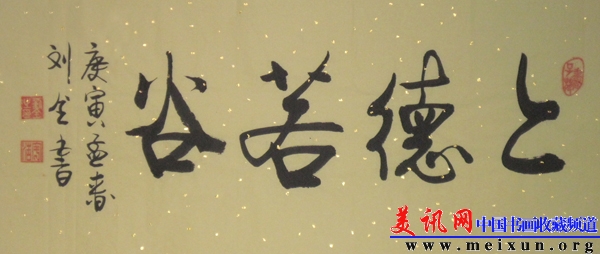 上德若谷
庚寅孟春
刘仝書
美讯网中国书画收藏频道
www.meixun.org